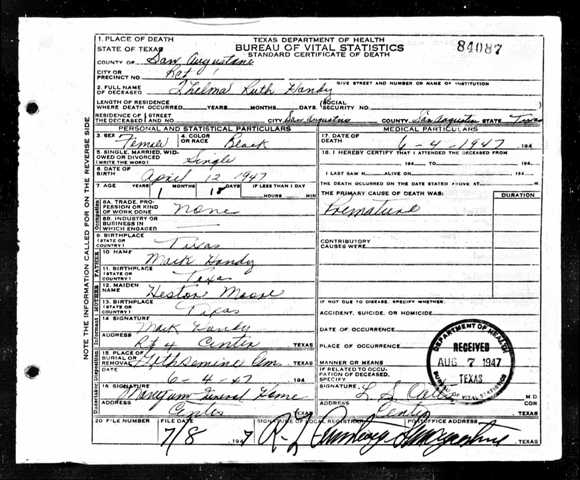 1. PLACE OF DEATH
STATE OF TEXAS
TEXAS DEPARTMENT OF HEALTH
BUREAU OF VITAL STATISTICS
STANDARD CERTIFICATE OF DEATH
84087
COUNTY OF San Augustine
CITY OR PRECINCT NO.
GIVE STREET AND NUMBER OR NAME OF INSTITUTION
2. FULL NAME OF DECEASED Thelma Ruth Handy
LENGTH OF RESIDENCE WHERE DEATH OCCURRED YEARS MONTHS DAYS (SOCIAL SECURITY NO.
RESIDENCE OF THE DECEASED STREET AND NO. CITY San Augustine COUNTY San Augustine STATE Texas
PERSONAL AND STATISTICAL PARTICULARS
MEDICAL PARTICULARS
3. SEX Female 4. COLOR OR RACE Black
17. DATE OF DEATH 6-4-1947 194
5. SINGLE, MARRIED, WIDOWED OR DIVORCED (WRITE THE WORD) Single
18. I HEREBY CERTIFY THAT I ATTENDED THE DECEASED FROM
194 TO 194
6. DATE OF BIRTH April 12 1947
I LAST SAW H ALIVE ON 194
7. AGE YEARS MONTHS DAYS IF LESS THAN 1 DAY
1 18 HOURS MIN
THE DEATH OCCURRED ON THE DATE STATED ABOVE AT M.
THE PRIMARY CAUSE OF DEATH WAS: DURATION
8A. TRADE, PROFESSION OR KIND OF WORK DONE None
Premature
8B. INDUSTRY OR BUSINESS IN WHICH ENGAGED
9. BIRTHPLACE (STATE OR COUNTRY) Texas
CONTRIBUTORY CAUSES WERE:
10. NAME Mack Handy
11. BIRTHPLACE (STATE OR COUNTRY) Texas
12. MAIDEN NAME Hestor Moore
13. BIRTHPLACE (STATE OR COUNTRY) Texas
IF NOT DUE TO DISEASE, SPECIFY:
ACCIDENT, SUICIDE, OR HOMICIDE
14. SIGNATURE Mack Handy
DATE OF OCCURRENCE
ADDRESS Rt 4 Center TEXAS
PLACE OF OCCURRENCE
15. PLACE OF BURIAL OR REMOVAL TEXAS
MANNER OR MEANS
DATE 6-4-47 194
IF RELATED TO OCCUPATION OF DECEASED, SPECIFY
16. SIGNATURE Mangum Funeral Home
SIGNATURE M.D.
ADDRESS Center TEXAS
ADDRESS Center TEXAS
20. FILE NUMBER FILE DATE SIGNATURE OF LOCAL REGISTRAR POSTOFFICE ADDRESS
7/8 1947 TEXAS
DEPARTMENT OF HEALTH
RECEIVED
AUG 7 1947
TEXAS
BUREAU OF VITAL STATISTICS
NOTE THE INFORMATION CALLED FOR ON THE REVERSE SIDE.